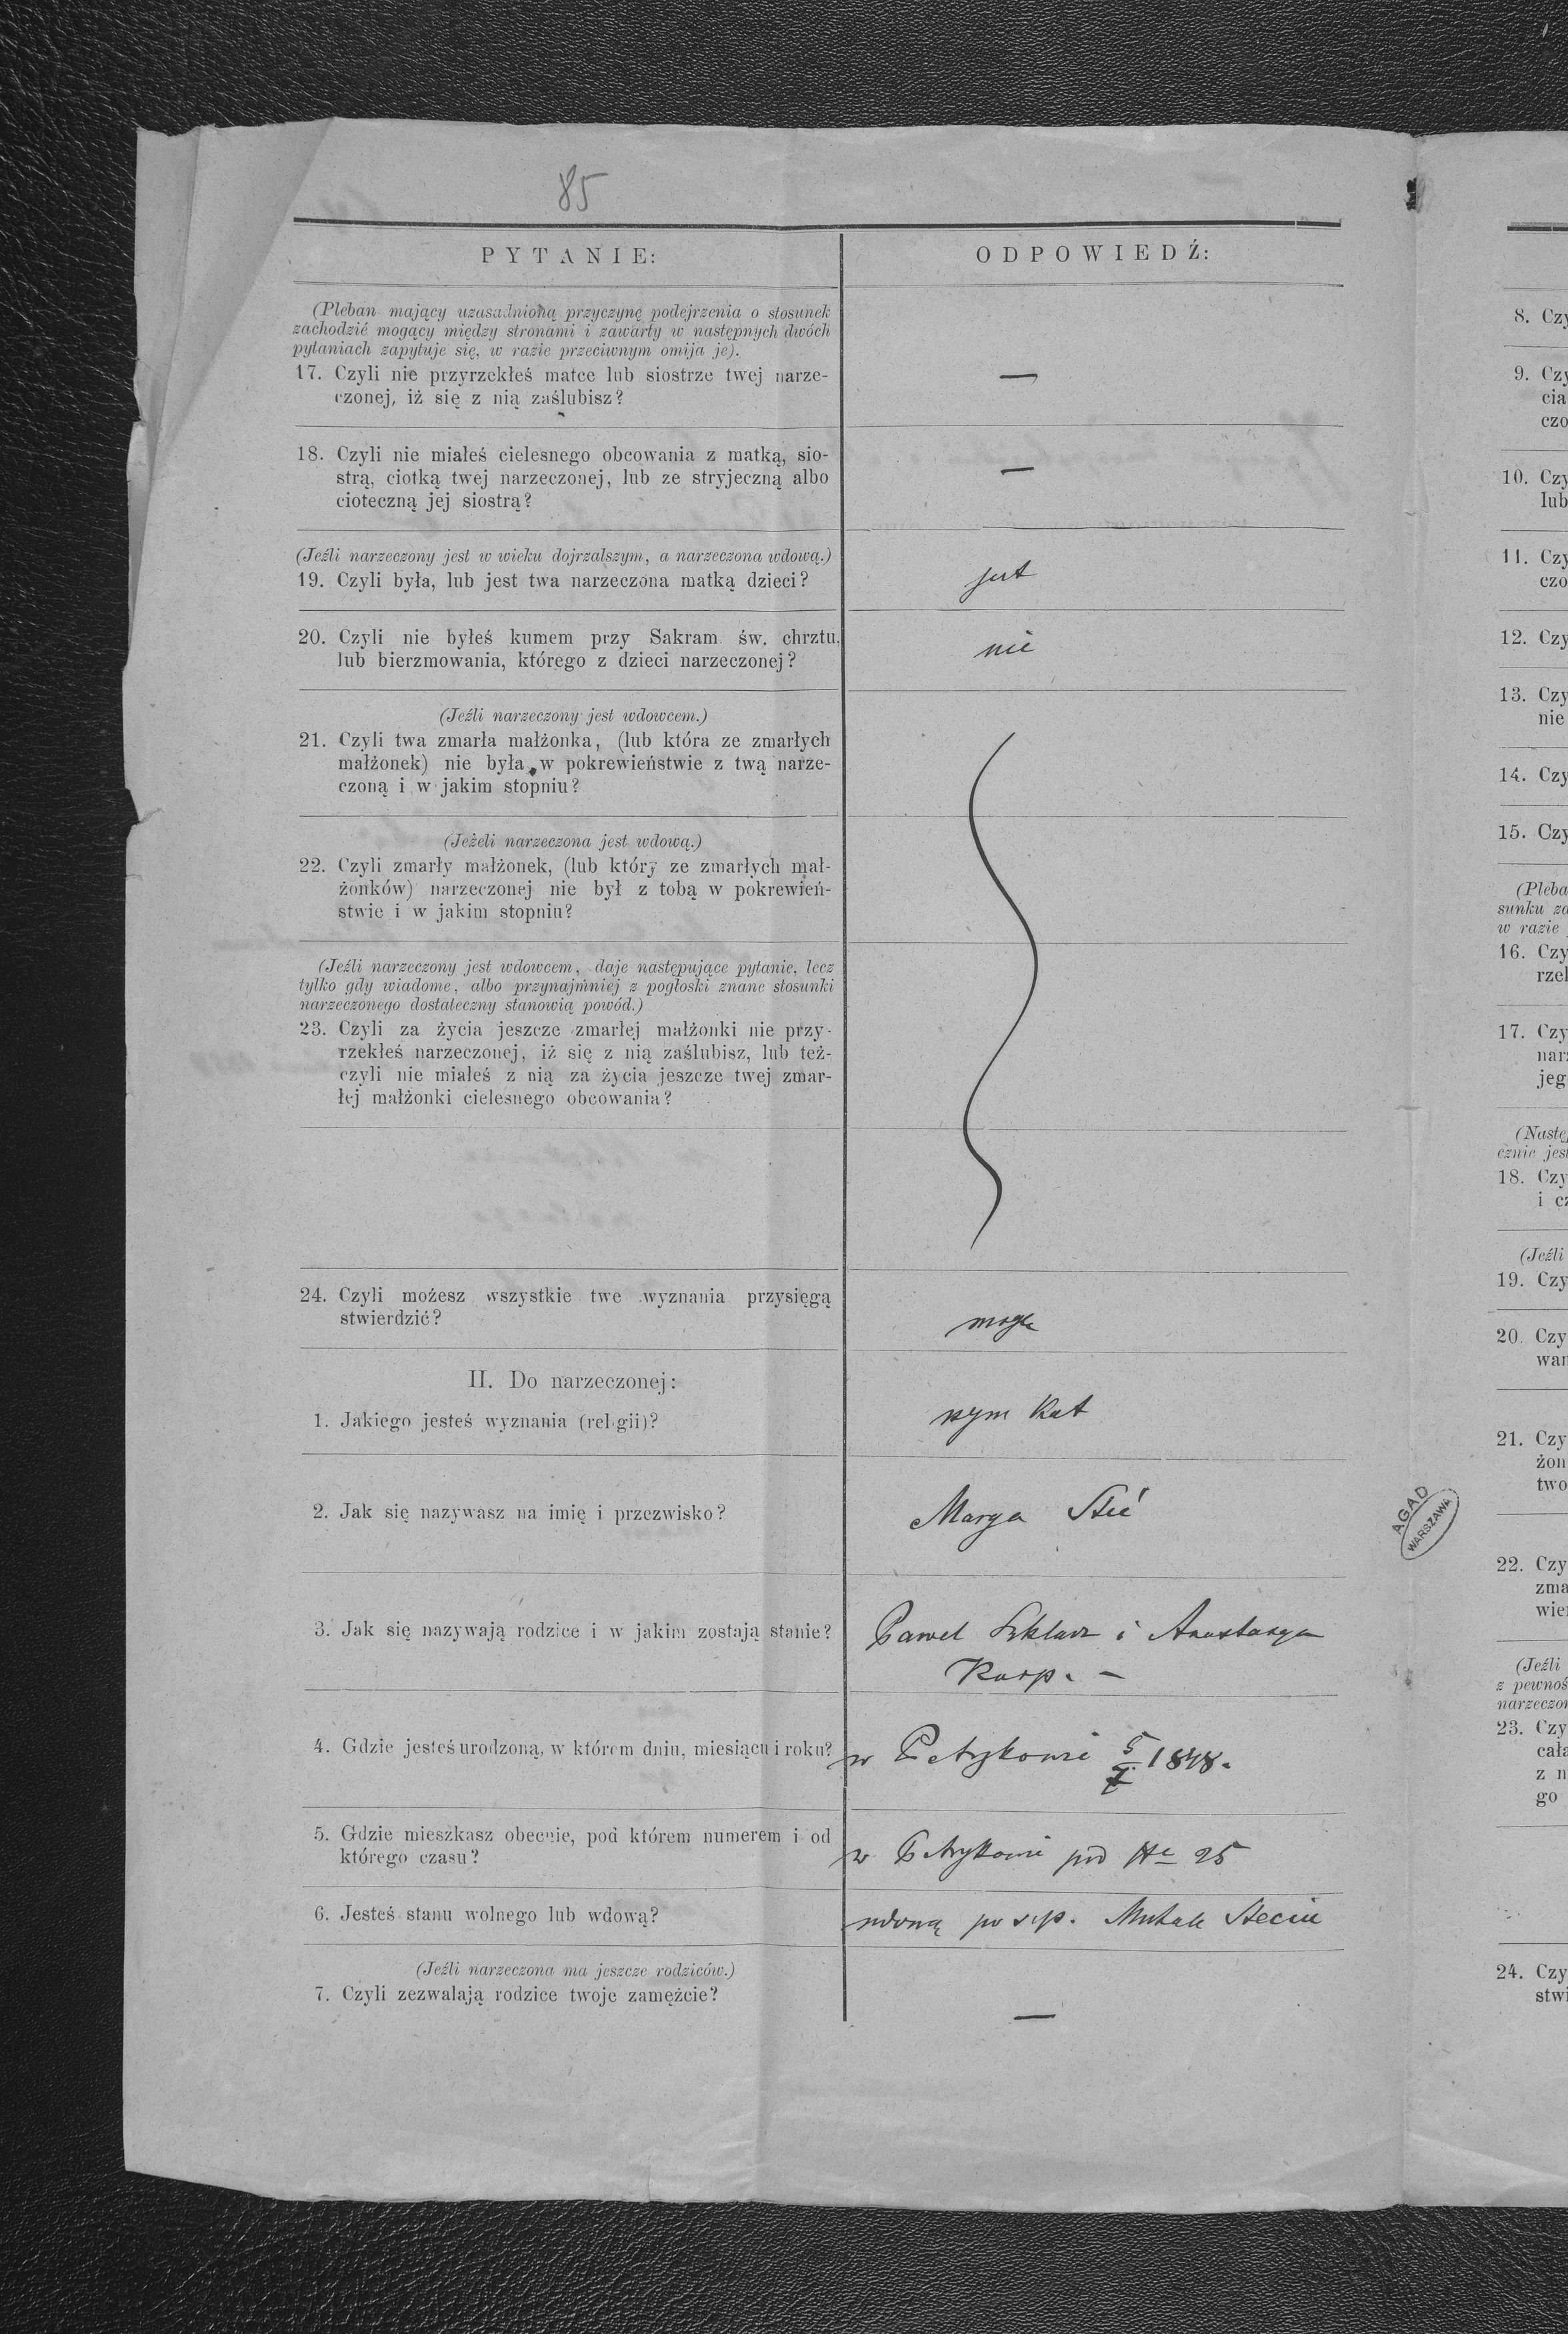 85
PYTANIE:
ODPOWIEDŹ:
(Pleban mający uzasadnioną przyczynę podejrzenia o stosunek
zachodzić mogący między stronami i zawarty w następnych dwóch
pytaniach zapytuje się, w razie przeciwnym omija je).
17. Czyli nie przyrzekłeś matce lub siostrze twej narze-
czonej, iż się z nią zaślubisz?
—
18. Czyli nie miałeś cielesnego obcowania z matką, sio-
strą, ciotką twej narzeczonej, lub ze stryjeczną albo
cioteczną jej siostrą?
—
(Jeźli narzeczony jest w wieku dojrzalszym, a narzeczona wdową.)
19. Czyli była, lub jest twa narzeczona matką dzieci?
jest
20. Czyli nie byłeś kumem przy Sakram. św. chrztu,
lub bierzmowania, którego z dzieci narzeczonej?
nie
(Jeźli narzeczony jest wdowcem.)
21. Czyli twa zmarła małżonka, (lub która ze zmarłych
małżonek) nie była w pokrewieństwie z twą narze-
czoną i w jakim stopniu?
(Jeżeli narzeczona jest wdową.)
22. Czyli zmarły małżonek, (lub który ze zmarłych mał-
żonków) narzeczonej nie był z tobą w pokrewień-
stwie i w jakim stopniu?
(Jeźli narzeczony jest wdowcem, daje następujące pytanie, lecz
tylko gdy wiadome, albo przynajmniej z pogłoski znane stosunki
narzeczonego dostateczny stanowią powód.)
23. Czyli za życia jeszcze zmarłej małżonki nie przy-
rzekłeś narzeczonej, iż się z nią zaślubisz, lub też-
czyli nie miałeś z nią za życia jeszcze twej zmar-
łej małżonki cielesnego obcowania?
24. Czyli możesz wszystkie twe wyznania przysięgą
stwierdzić?
mogę
II. Do narzeczonej:
1. Jakiego jesteś wyznania (religii)?
rzym Kat
2. Jak się nazywasz na imię i przezwisko?
Marya Steć
3. Jak się nazywają rodzice i w jakim zostają stanie?
Paweł Szklarz i Anastazya
Karp. —
4. Gdzie jesteś urodzoną, w którem dniu, miesiącu i roku?
w Petrykowie 5 1848.
5. Gdzie mieszkasz obecnie, pod którem numerem i od
którego czasu?
w Petrykowie pod Nr 25
6. Jesteś stanu wolnego lub wdową?
wdową po ś.p. Steciu
(Jeźli narzeczona ma jeszcze rodziców.)
7. Czyli zezwalają rodzice twoje zamęźcie?
—
AGAD
WARSZAWA
8. Czy
9. Czy
cia
czo
10. Czy
lub
11. Czy
czo
12. Czy
13. Czy
nie
14. Czy
15. Czy
(Pleba
sunku za
w razie
16. Czy
rzel
17. Czy
narz
jeg
(Nastę
cznie jes
18. Czy
i cz
(Jeźli
19. Czy
20. Czy
wan
21. Czy
żon
two
22. Czy
zma
wie
(Jeźli
z pewnoś
narzeczon
23. Czy
cała
z n
go
24. Czy
stwi